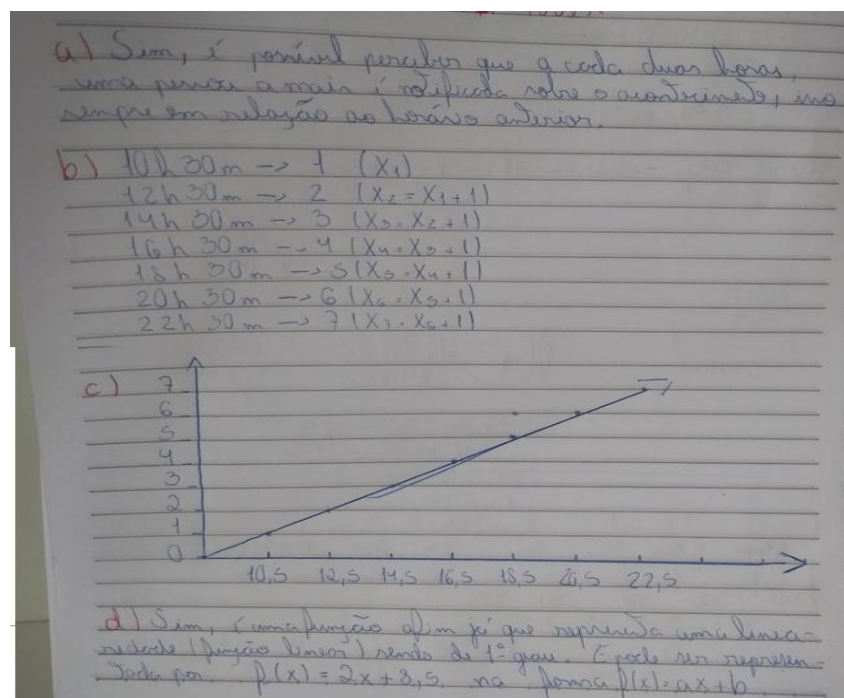 a) Sim, é possível perceber que a cada duas horas,
uma pessoa a mais é notificada sobre o acontecimento, isso
sempre em relação ao horário anterior.
b) 10h 30m -> 1 (X1)
12h 30m -> 2 (X2 = X1 + 1)
14h 30m -> 3 (X3 = X2 + 1)
16h 30m -> 4 (X4 = X3 + 1)
18h 30m -> 5 (X5 = X4 + 1)
20h 30m -> 6 (X6 = X5 + 1)
22h 30m -> 7 (X7 = X6 + 1)
c) 7
6
5
4
3
2
1
0
10,5 12,5 14,5 16,5 18,5 20,5 22,5
d) Sim, é uma função afim já que representa uma linea-
ridade (função linear) sendo de 1º grau. E pode ser represen-
tada por f(x) = 2x + 8,5 na forma f(x) = ax + b